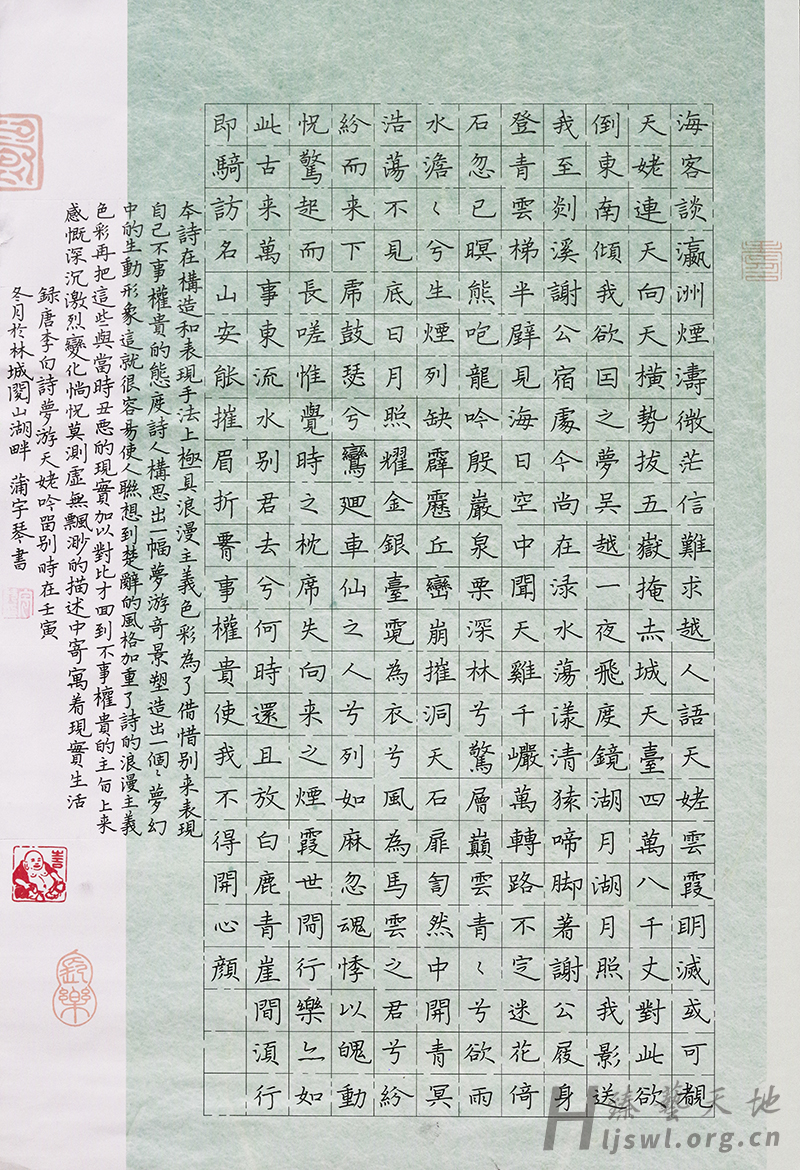 海客談瀛洲煙濤微茫信難求越人語天姥雲霞明滅或可覩
天姥連天向天橫勢拔五嶽掩赤城天臺四萬八千丈對此欲
倒東南傾我欲因之夢吳越一夜飛度鏡湖月湖月照我影送
我至剡溪謝公宿處今尚在淥水蕩漾清猿啼脚著謝公屐身
登青雲梯半壁見海日空中聞天雞千巖萬轉路不定迷花倚
石忽已暝熊咆龍吟殷巖泉栗深林兮驚層巔雲青〻兮欲雨
水澹〻兮生煙列缺霹靂丘巒崩摧洞天石扉訇然中開青冥
浩蕩不見底日月照耀金銀臺霓為衣兮風為馬雲之君兮紛
紛而来下虎鼓瑟兮鸞廻車仙之人兮列如麻忽魂悸以魄動
怳驚起而長嗟惟覺時之枕席失向来之煙霞世間行樂亦如
此古来萬事東流水别君去兮何時還且放白鹿青崖間須行
即騎訪名山安能摧眉折腰事權貴使我不得開心顔
本詩在構造和表現手法上極具浪漫主義色彩為了借惜别来表現
自己不事權貴的態度詩人構思出一幅夢游奇景塑造出一個〻夢幻
中的生動形象這就很容易使人聯想到楚辭的風格加重了詩的浪漫主義
色彩再把這些與當時丑惡的現實加以對比才回到不事權貴的主旨上来
感慨深沉激烈變化惝怳莫測虛無飄渺的描述中寄寓着現實生活
録唐李白詩夢游天姥吟留别時在壬寅
冬月於林城閱山湖畔 蒲宇琴書
臻藝天地
Hljswl.org.cn